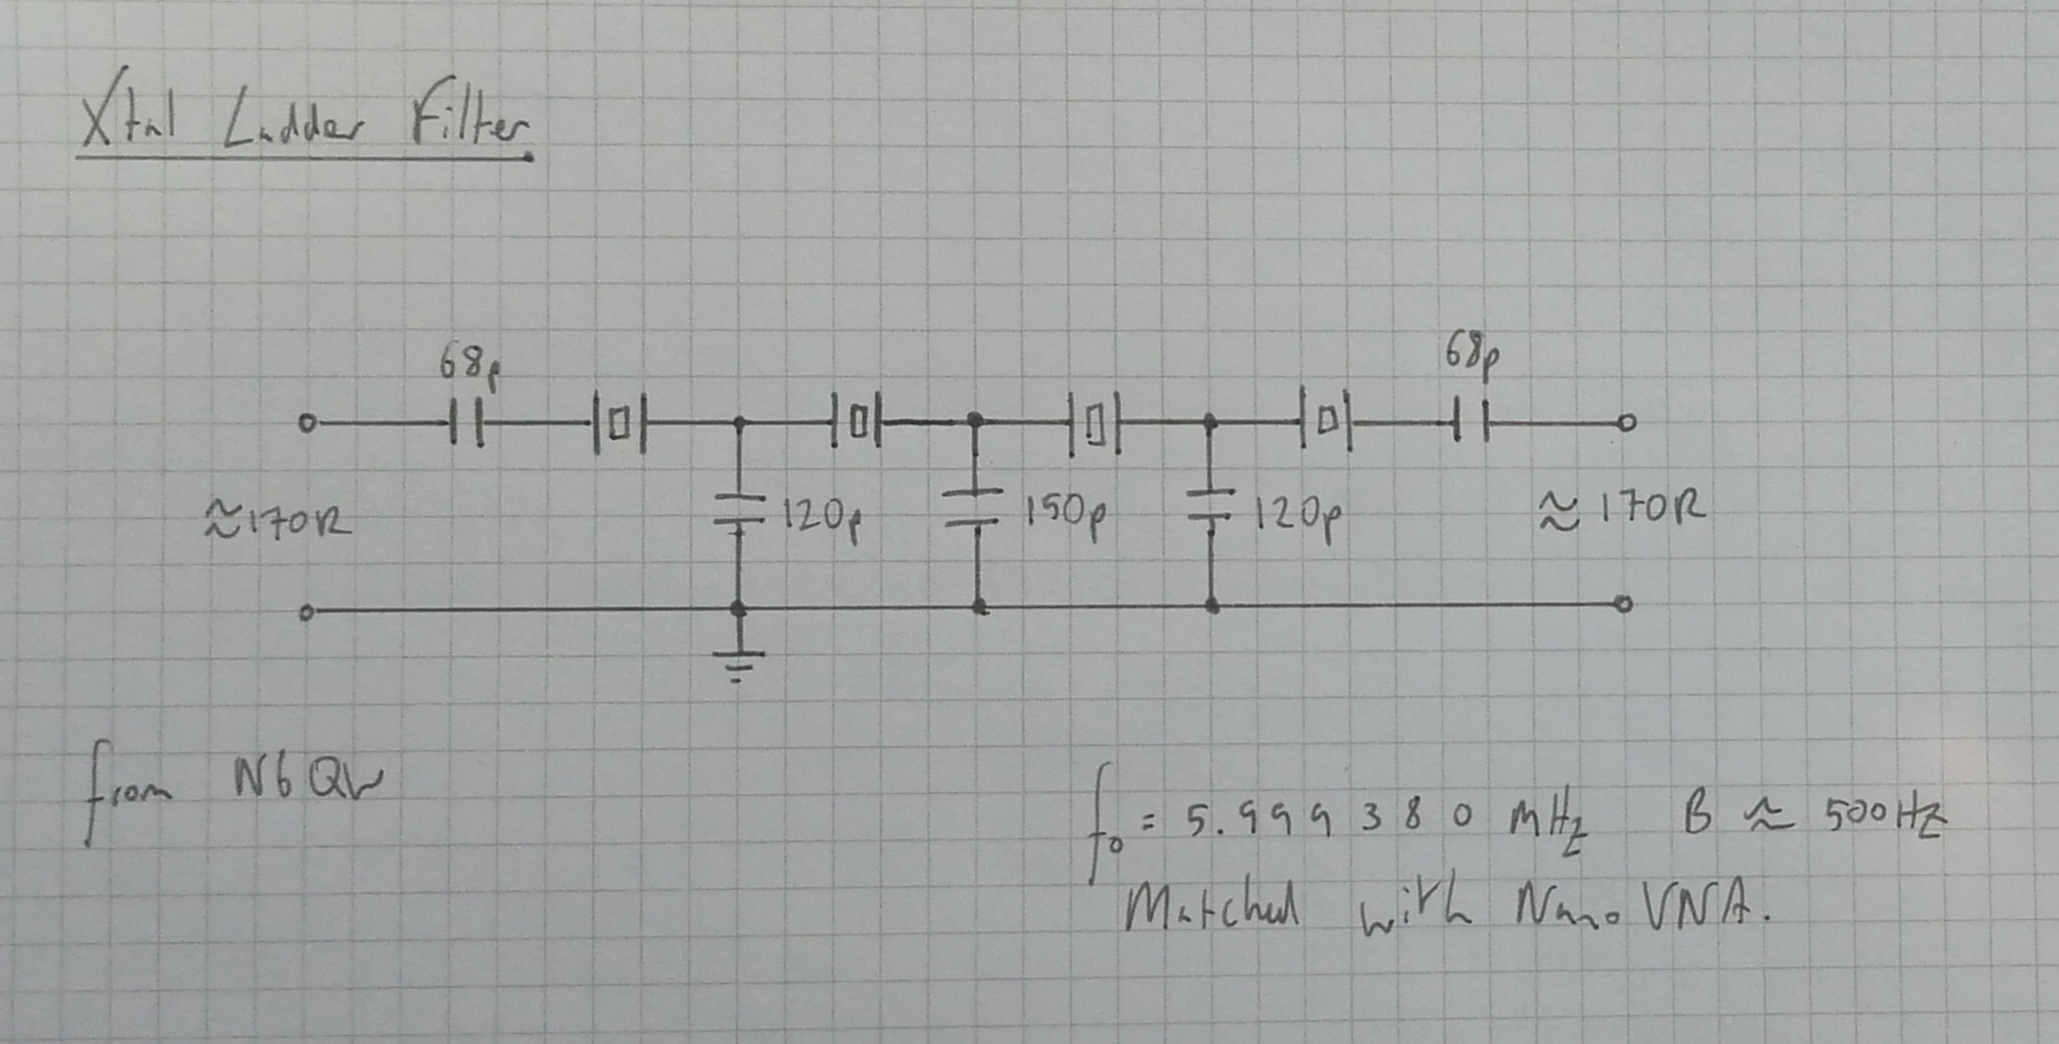 Xtal Ladder Filter
68p
68p
≈170R
120p
150p
120p
≈ 170R
from N6QW
f₀ = 5.999380 MHz B ≈ 500Hz
Matched with NanoVNA.